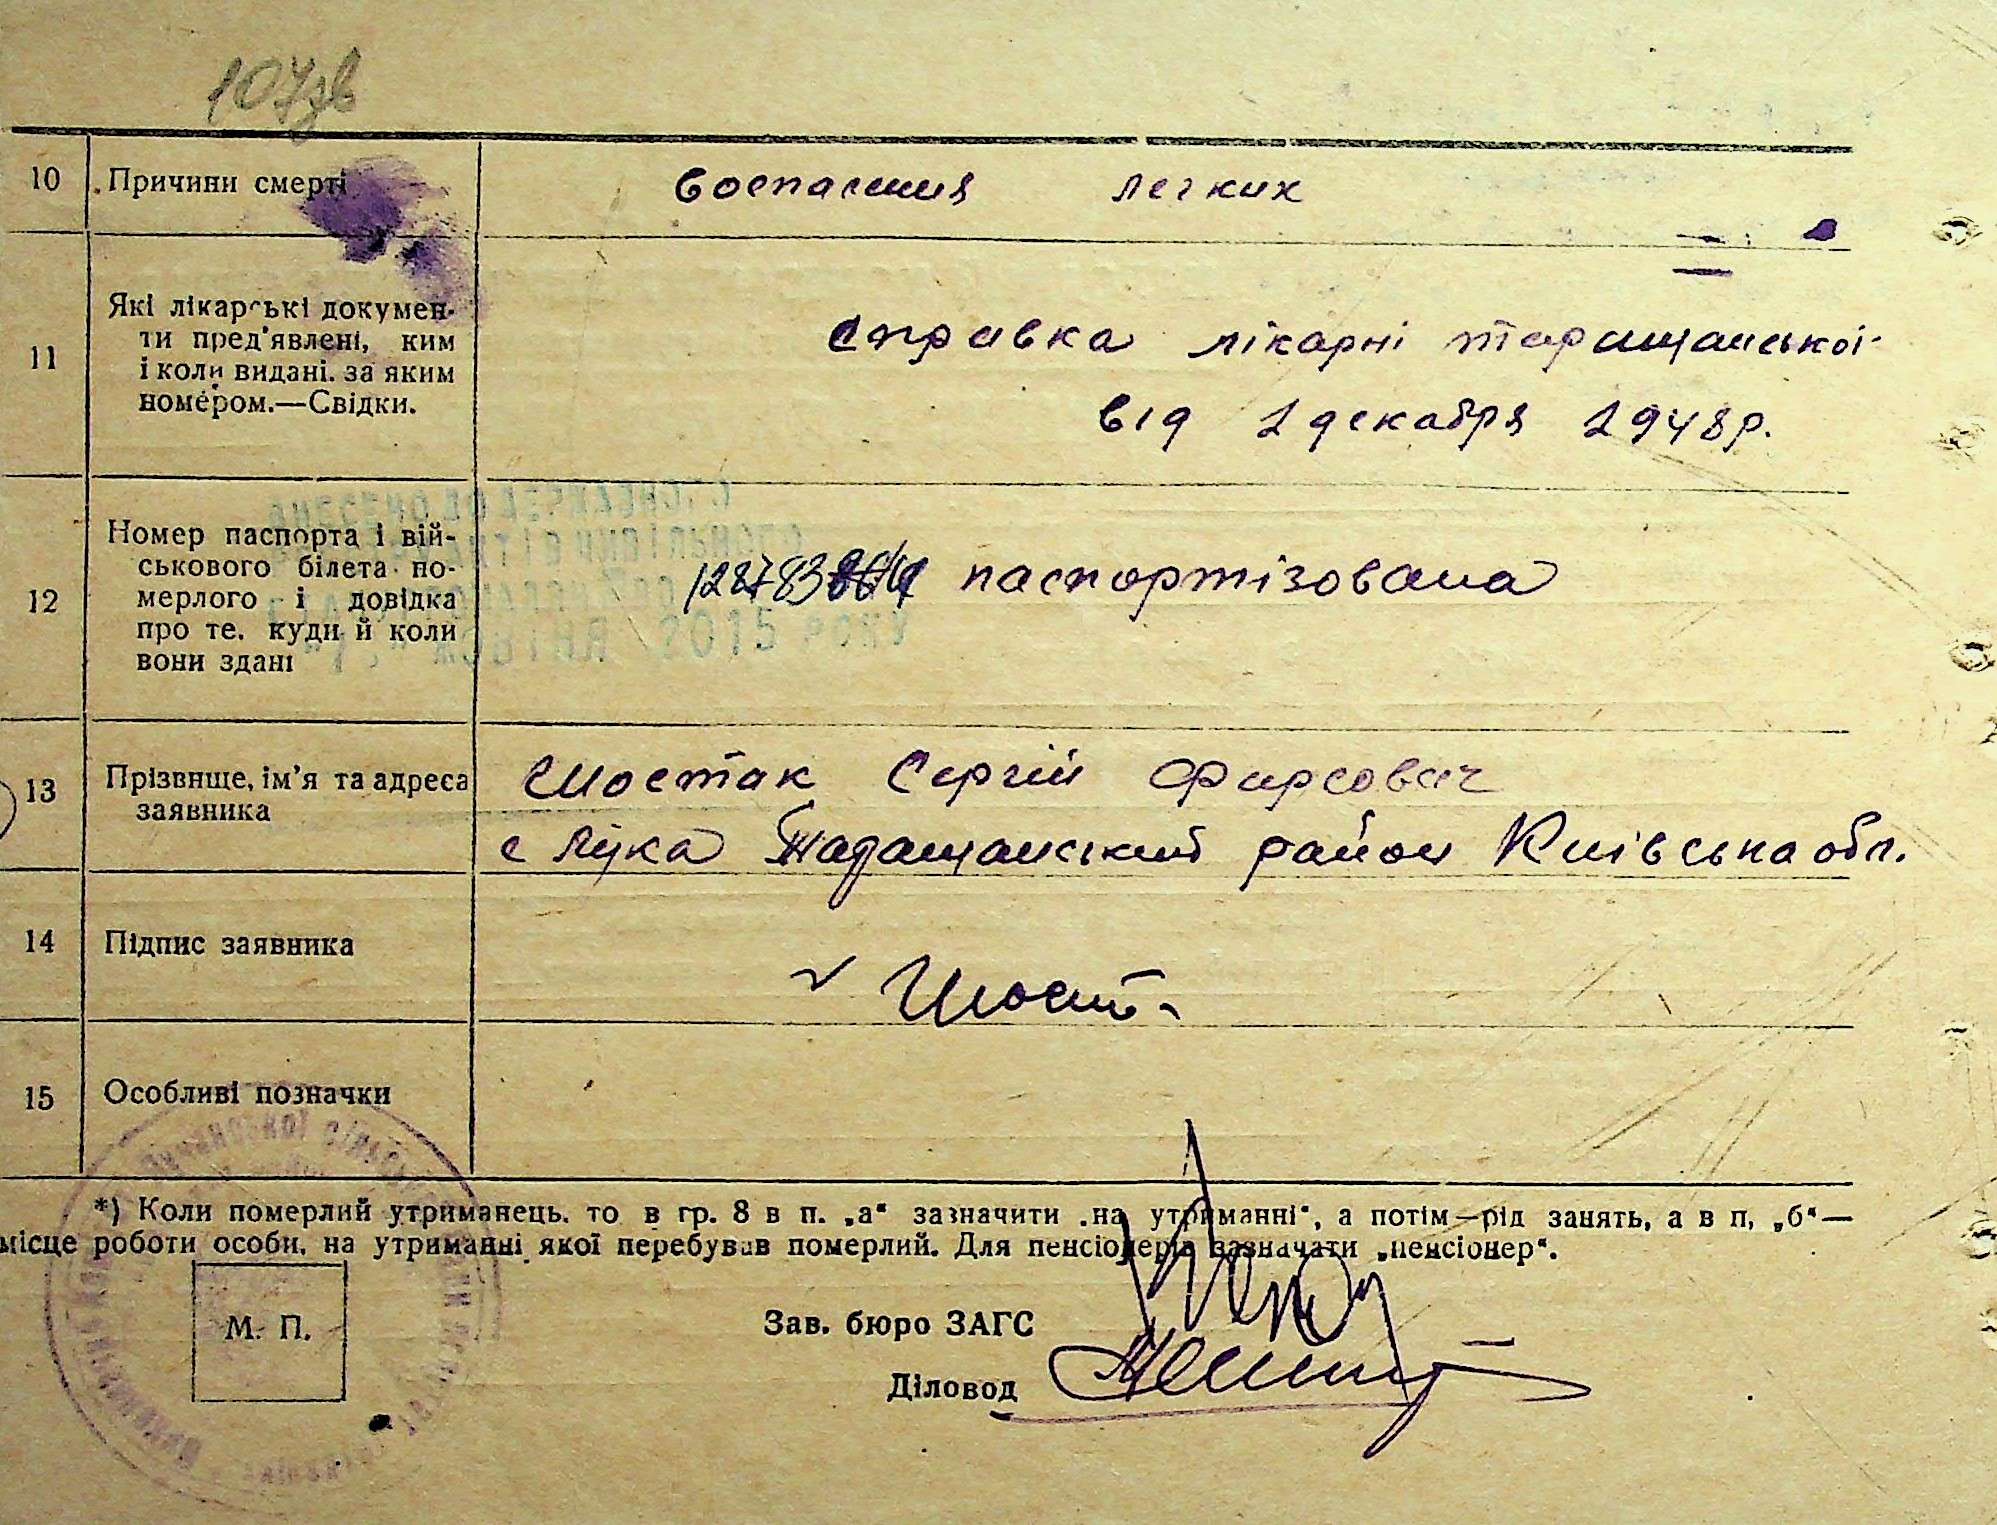 107зв
10 Причини смерті воспаления легких
11 Які лікарські докумен-
ти пред'явлені, ким
і коли видані. за яким
номером.—Свідки.
справка лікарні таращанської
від 1 декабря 1948р.
12 Номер паспорта і вій-
ськового білета по-
мерлого і довідка
про те. куди й коли
вони здані
паспортізована
ВНЕСЕНО ДО ДЕРЖАВНОГО
АКТІВ ЦИВІЛЬНОГО
ЖОВТНЯ 2015 РОКУ
13 Прізвище, ім'я та адреса
заявника
Шостак Сергій Фирсович
с Лука Таращанский район Київська обл.
14 Підпис заявника
Шост
15 Особливі позначки
*) Коли померлий утриманець. то в гр. 8 в п. „а“ зазначити „на утриманні“, а потім—рід занять, а в п, „б“—
місце роботи особи, на утриманні якої перебував померлий. Для пенсіонерів зазначати „пенсіонер“.
М. П.
Зав. бюро ЗАГС
Діловод